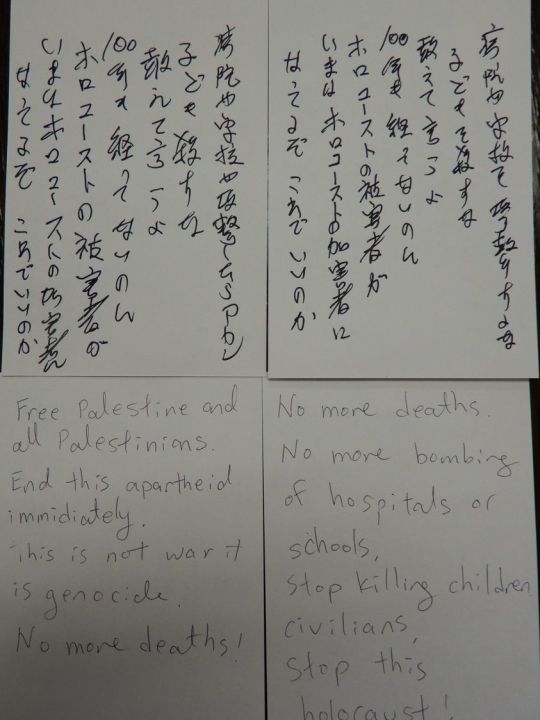 病院や学校や攻撃したらアカン
子ども殺すな
敢えて言うよ
100年も経ってないのに
ホロコーストの被害者が
いまはホロコーストの加害者に
なってるぞ これでいいのか
病院や学校
子どもを殺すな
敢えて言うよ
100年も経ってないのに
ホロコーストの被害者が
いまはホロコーストの加害者に
なってるぞ これでいいのか
Free Palestine and
all Palestinians.
End this apartheid
immidiately.
This is not war it
is genocide.
No more deaths!
No more deaths.
No more bombing
of hospitals or
schools,
Stop killing children,
civilians,
Stop this
holocaust!